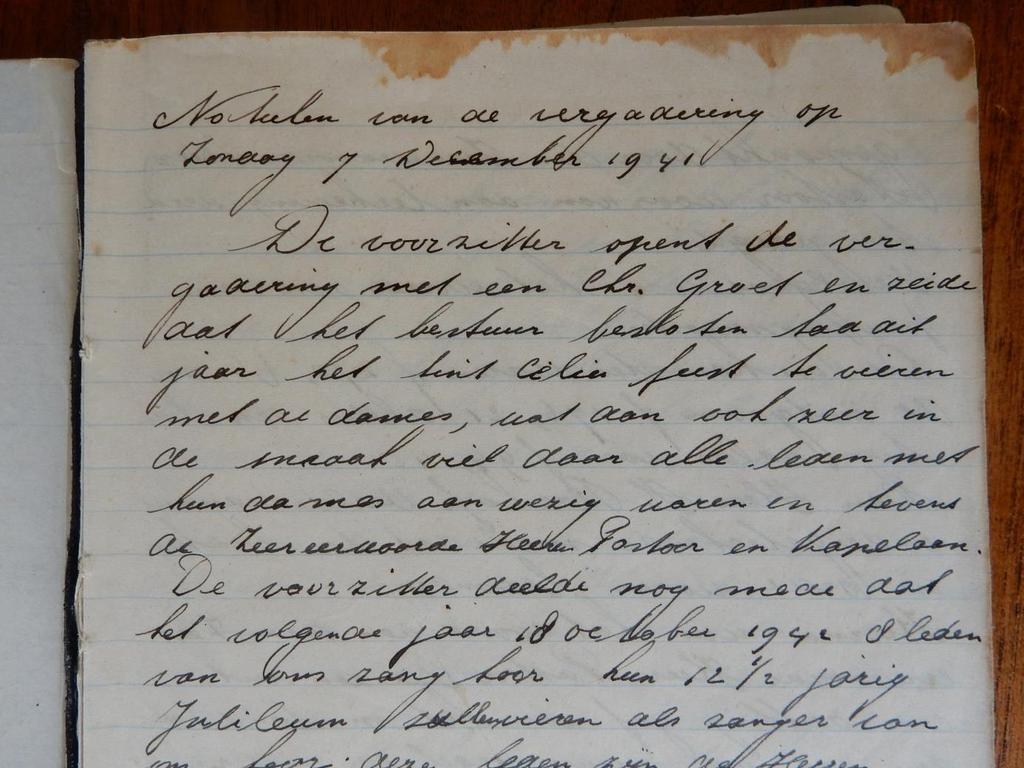 Notulen van de vergadering op
Zondag 7 December 1941
De voorzitter opent de ver-
gadering met een Chr. Groet en zeide
dat het bestuur besloten had dit
jaar het Sint Célia feest te vieren
met de dames, wat dan ook zeer in
de smaak viel daar alle leden met
hun dames aanwezig waren en tevens
de Zeereerwaarde Heeren Pastoor en Kapelaan.
De voorzitter deelde nog mede dat
het volgende jaar 18 october 1942 8 leden
van ons zang koor hun 12 1/2 jarig
Jubileum zullen vieren als zanger van
ons koor. deze leden zijn de Heeren